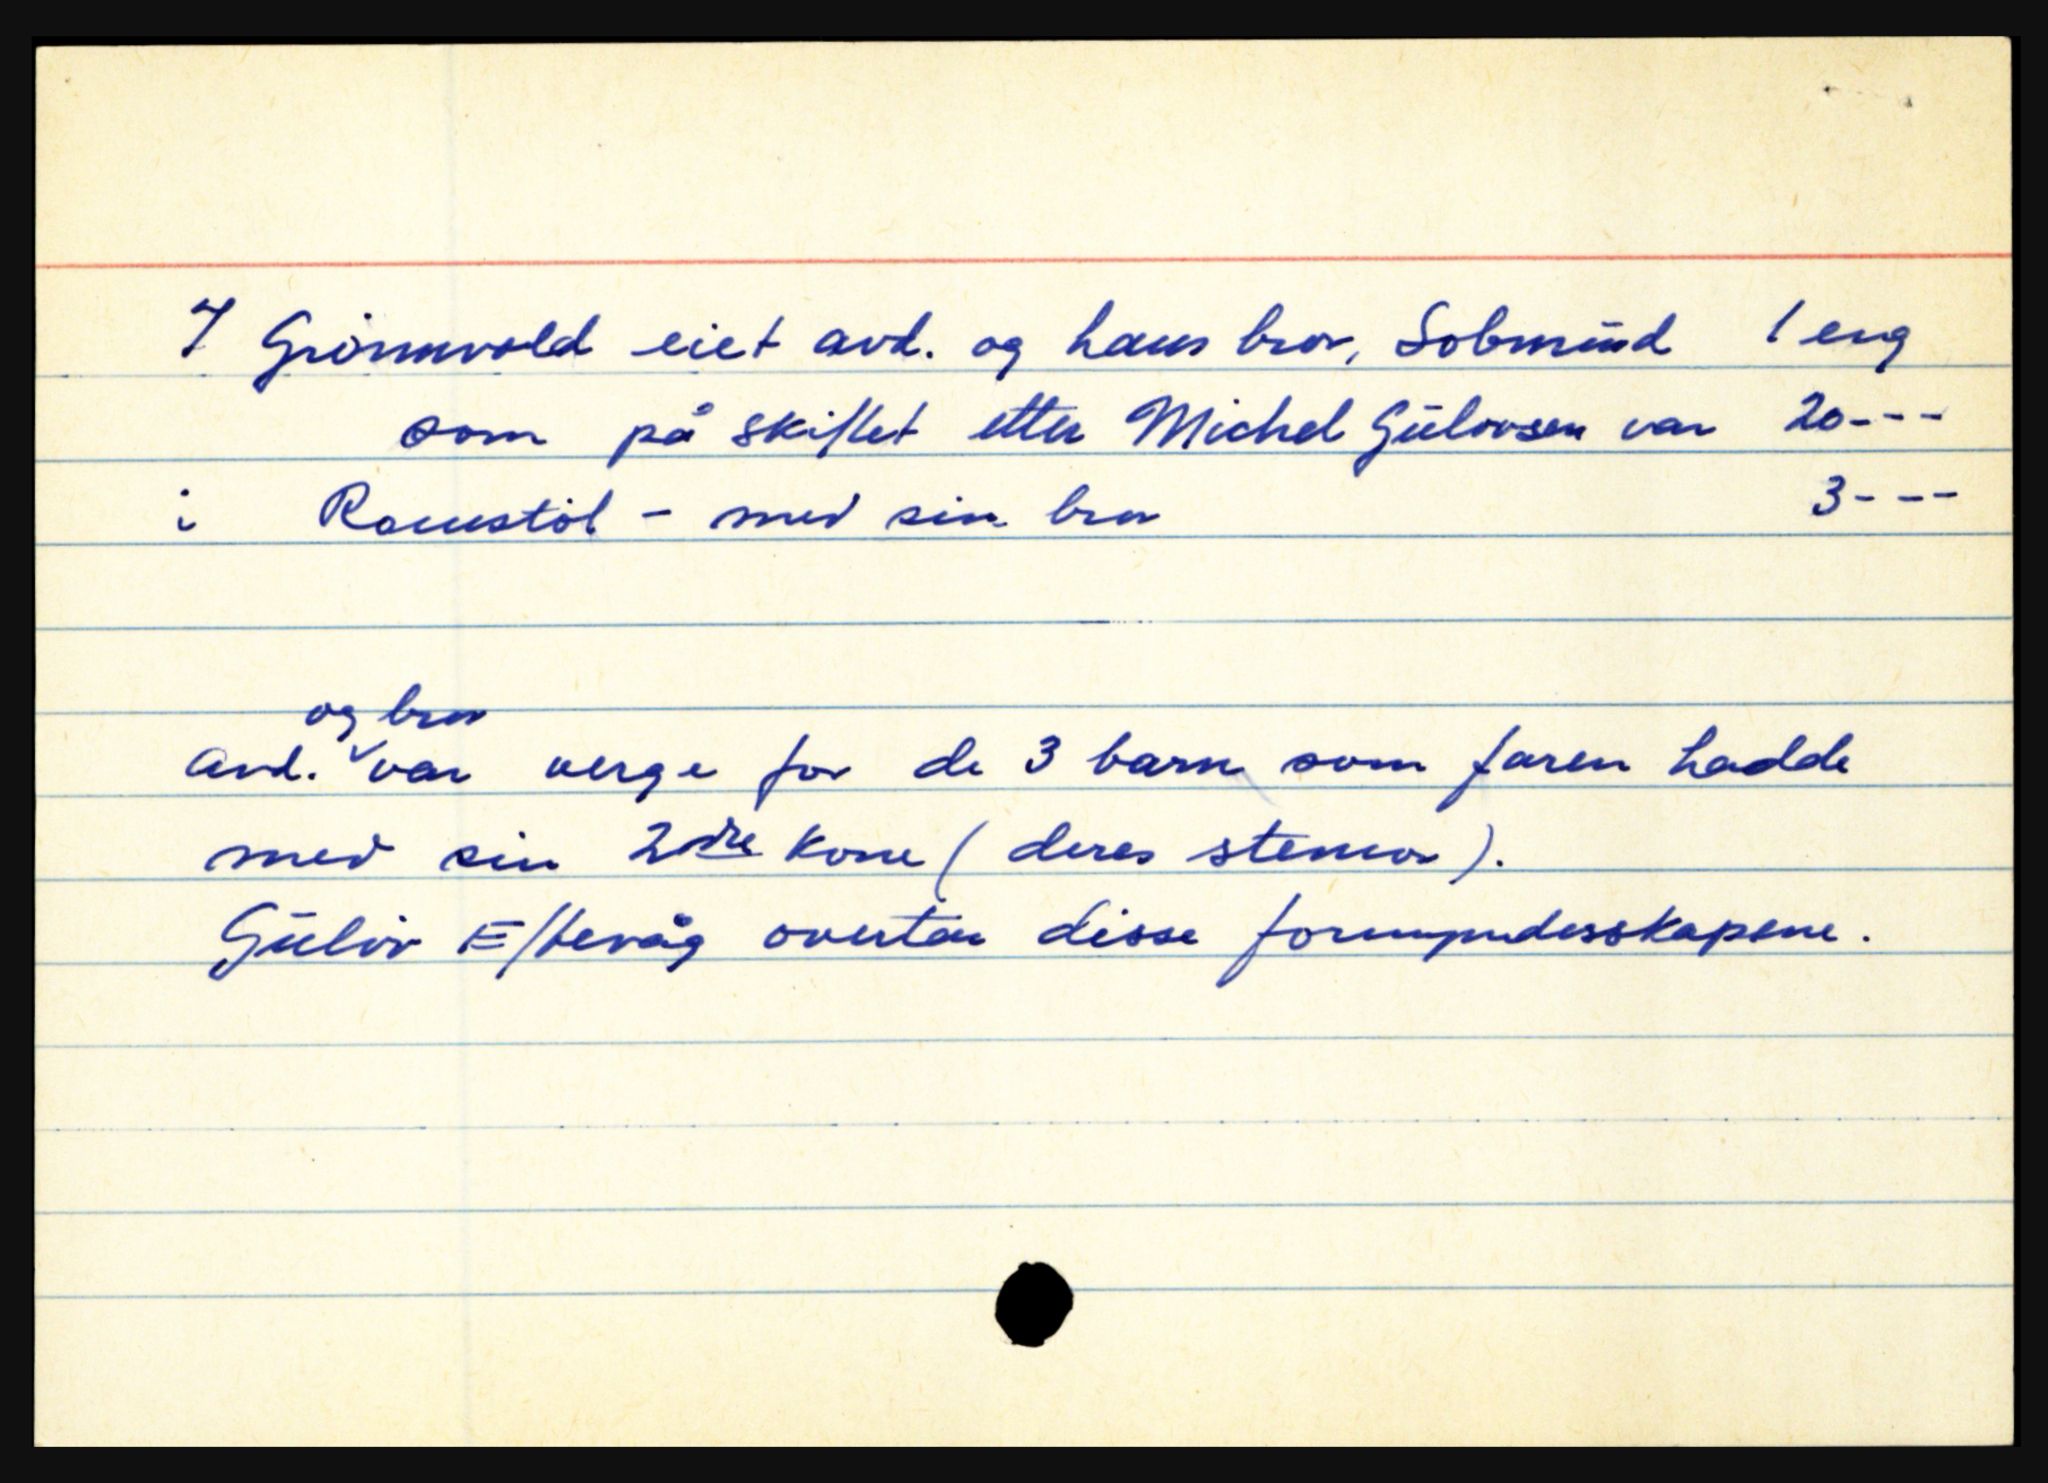 I Grönnvold eiet avd. og hans bror, Solmünd 1 eng
som på skiftet etter Michel Gülovsen var 20---
i Romstöl - med sin bror 3---
og bror
Avd. var verge for de 3 barn som faren hadde
med sin 2dre kone (deres stemor).
Gülöv Eftevåg overtar disse formynderskapene.